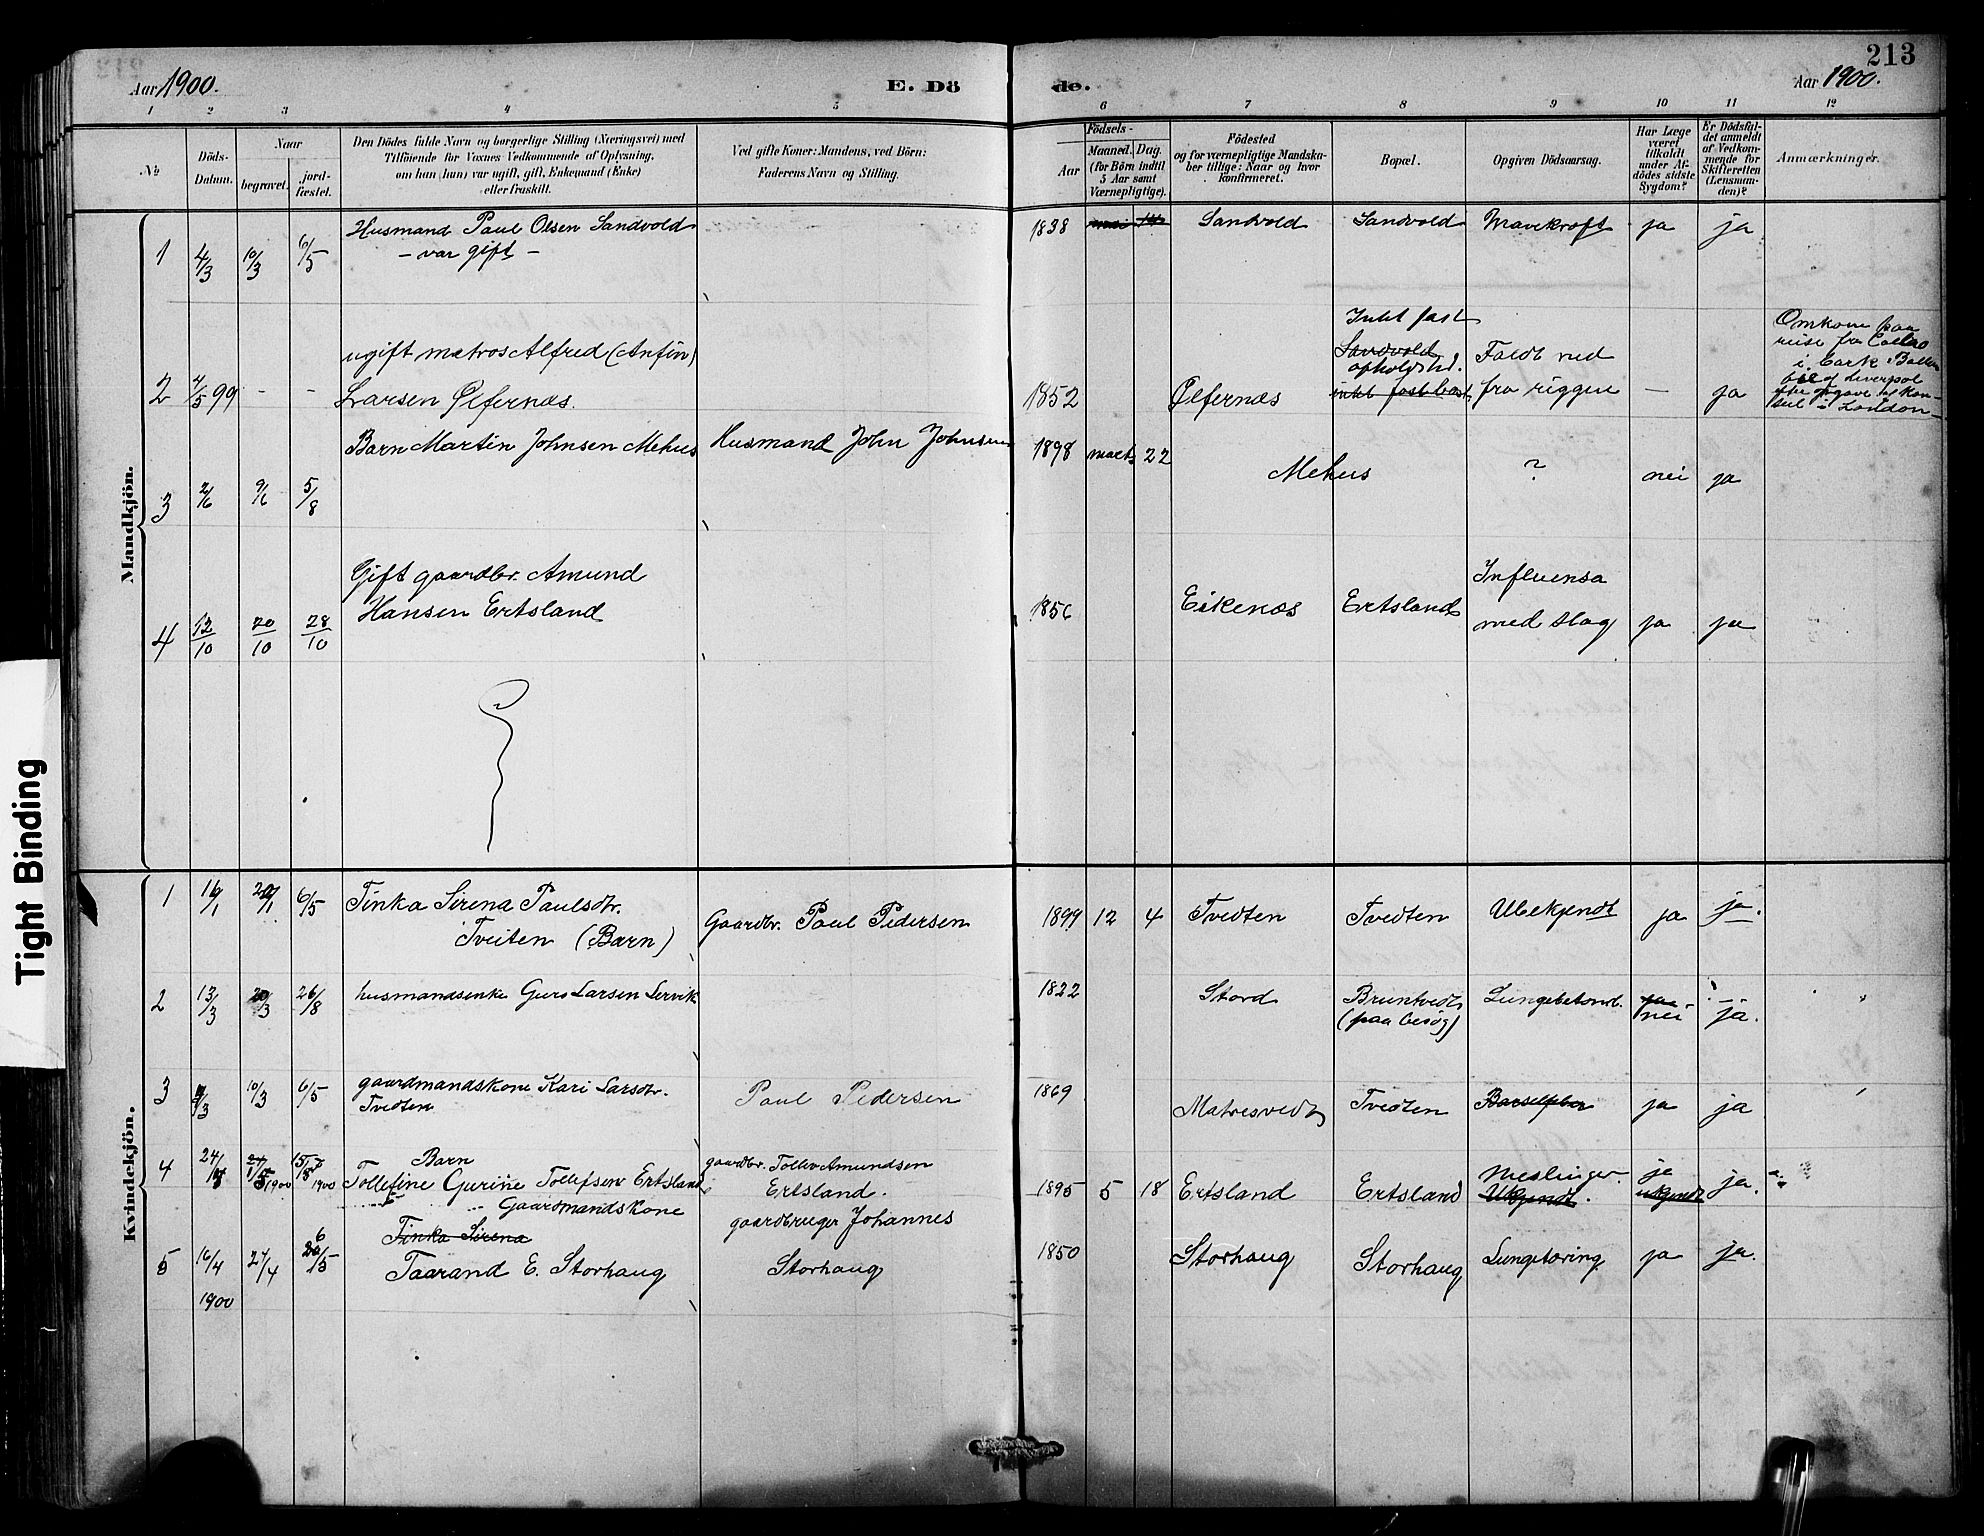 213
Aar 1900.
E. Dö
de.
Aar 1900.
1 2 3 4 5 6 7 8 9 10 11 12
No
Döds-
Datum.
Naar
begravet.
jord-
fæstet.
Den Dödes fulde Navn og borgerlige Stilling (Næringsvei) med
Tilföiende for Voxnes Vedkommende af Oplysning,
om han (hun) var ugift, gift, Enkemand (Enke)
eller fraskilt.
Ved gifte Koner: Mandens, ved Börn:
Faderens Navn og Stilling.
Födsels-
Aar
Maaned. Dag.
(for Börn indtil
5 Aar samt
Værnepligtige).
Födested
og for værnepligtige Mandska-
ber tillige: Naar og hvor
konfirmeret.
Bopæl.
Opgiven Dödsaarsag.
Har Læge
været
tilkaldt
under Af-
dødes sidste
Sygdom?
Er Dödsfal-
det anmeldt
af Vedkom-
mende for
Skifteretten
(Lensman-
den)?
Anmærkninger.
Mandkjön.
1 4/3 10/3 6/5 Husmand Paul Olsen Sandvold 1838 mai Sandvold Sandvold Mavekræft ja ja
- var gift -
2 4/5 99 - - ugift matros Alfred (Anfin)
Larsen Ølfernæs. 1852 Ølfernæs
Intet fast
Sandvold
opholdsted.
intet fast bost
Faldt ned
fra riggen - ja
Omkom paa
reise fra Callao
i bark
of Liverpool
efter opgave af kon-
sul i London
3 2/6 9/6 5/8 Barn Martin Johnsen Mehus Husmand John Johnsen 1898 marts 22 Mehus ? nei ja
4 12/10 20/10 28/10 Gift gaardbr. Amund
Hansen Ertsland 1856 Eikenæs Ertsland Influensa
med slag ja ja
Kvindekjön.
1 16/1 20/1 6/5 Tinka Sirena Paulsdtr.
Tveiten (Barn) Gaardbr. Paul Pedersen 1899 12 4 Tvedten Tvedten Ubekjendt ja ja.
2 13/3 20/3 26/8 husmandsenke Guro Larsen Lervik 1822 Stord Bruntvedt
(paa besøg) Lungebetænd. ja
nei ja.
3 /3 10/3 6/5 gaardmandskone Kari Larsdtr.
Tvedten Paul Pedersen 1869 Matresvedt Tvedten Barselfeber ja ja
4 24/ 1900 1900 Barn
Tollefine Gurine Tollefsen Ertsland gaardbr. Tollev Amundsen
Ertsland. 1895 5 18 Ertsland Ertsland Meslinger
Ukjendt. ja
ukjendt ja.
Gaardmandskone
Tinka Sirena
5 16/4 27/4 6/5 Taarand E. Storhaug gaardbruger Johannes
Storhaug 1850 Storhaug Storhaug Lungetæring ja ja.
1900
Tight Binding